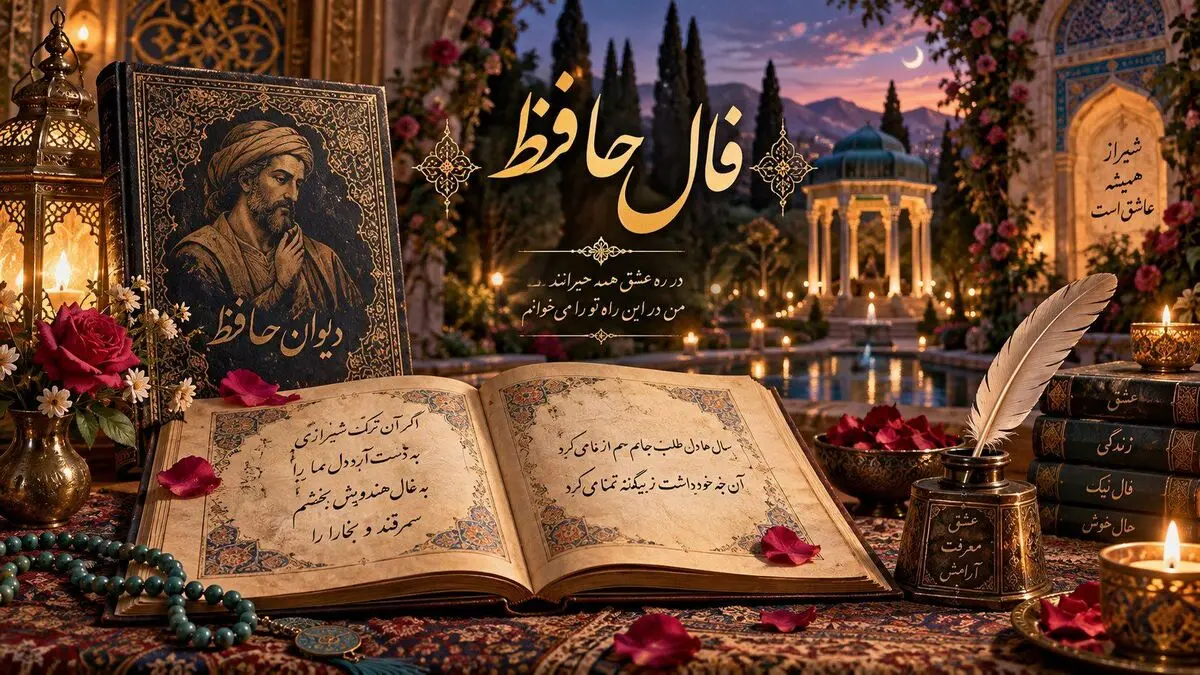 فال حافظ
در ره عشق همه حیرانند ...
من در این راه تو را می‌خوانم
دیوان حافظ
شیراز
همیشه
عاشق است
اگر آن ترک شیرازی
به دست آرد دل ما را
به خال هندویش بخشم
سمرقند و بخارا را
سال ها دل طلب جام جم از ما می کرد
آن چه خود داشت ز بیگانه تمنا می کرد
عشق
معرفت
آرامش
عشق
زندگی
فال نیک
حال خوش